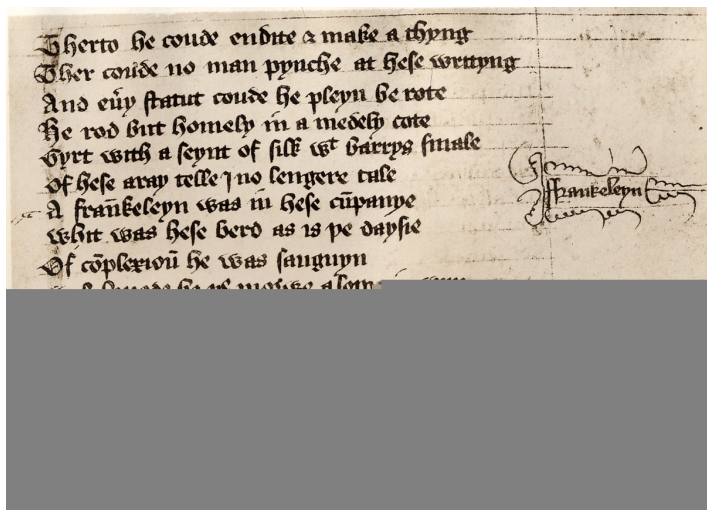 Therto he coude endite & make a thyng
Ther coude no man pynche at hese writyng
And eu̓y statut coude he pleyn be rote
He rod but homely in a medely cote
Gyrt with a seynt of silk wt barrys smale
Of hese aray telle I no lengere tale
A frañkeleyn was in hese cūpanye
ffrankeleyn
Whit was hese berd as is þe daysie
Of cōplexioū he was sanguyn